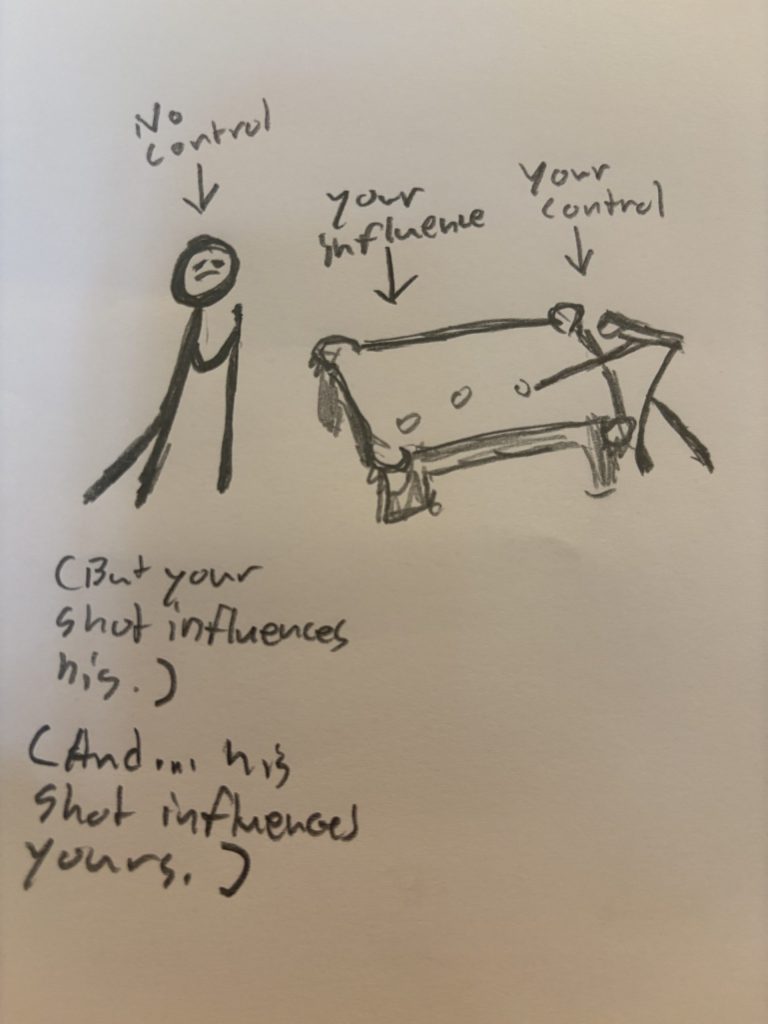 No
control
your
influence
Your
control
(But your
shot influences
his.)
(And... his
shot influences
yours.)